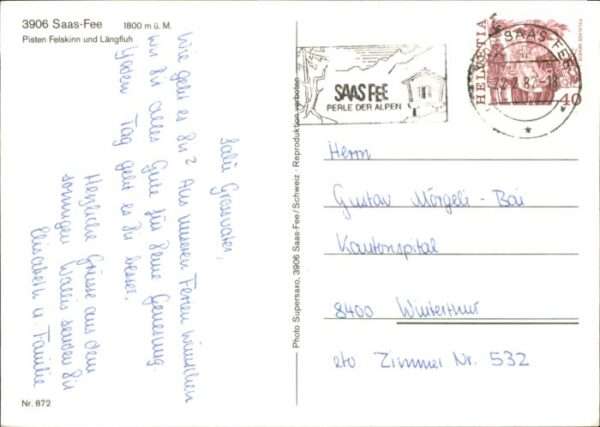 3906 Saas-Fee 1800 m ü. M.
Pisten Felskinn und Längfluh
Salü Grossvater,
Wie geht es Dir? Aus unseren Ferien wünschen
wir Dir alles Gute für Deine Genesung.
Jeden Tag geht es Dir besser.
Herzliche Grüsse aus dem
sonnigen Wallis senden Dir
Elisabeth u. Familie
Nr. 872
Photo Supersaxo, 3906 Saas-Fee/Schweiz · Reproduktion verboten
SAAS FEE
PERLE DER ALPEN
SAAS FEE
HELVETIA
40
Herrn
Gustav Mörgeli - Bai
Kantonspital
8400 Winterthur
Zimmer Nr. 532